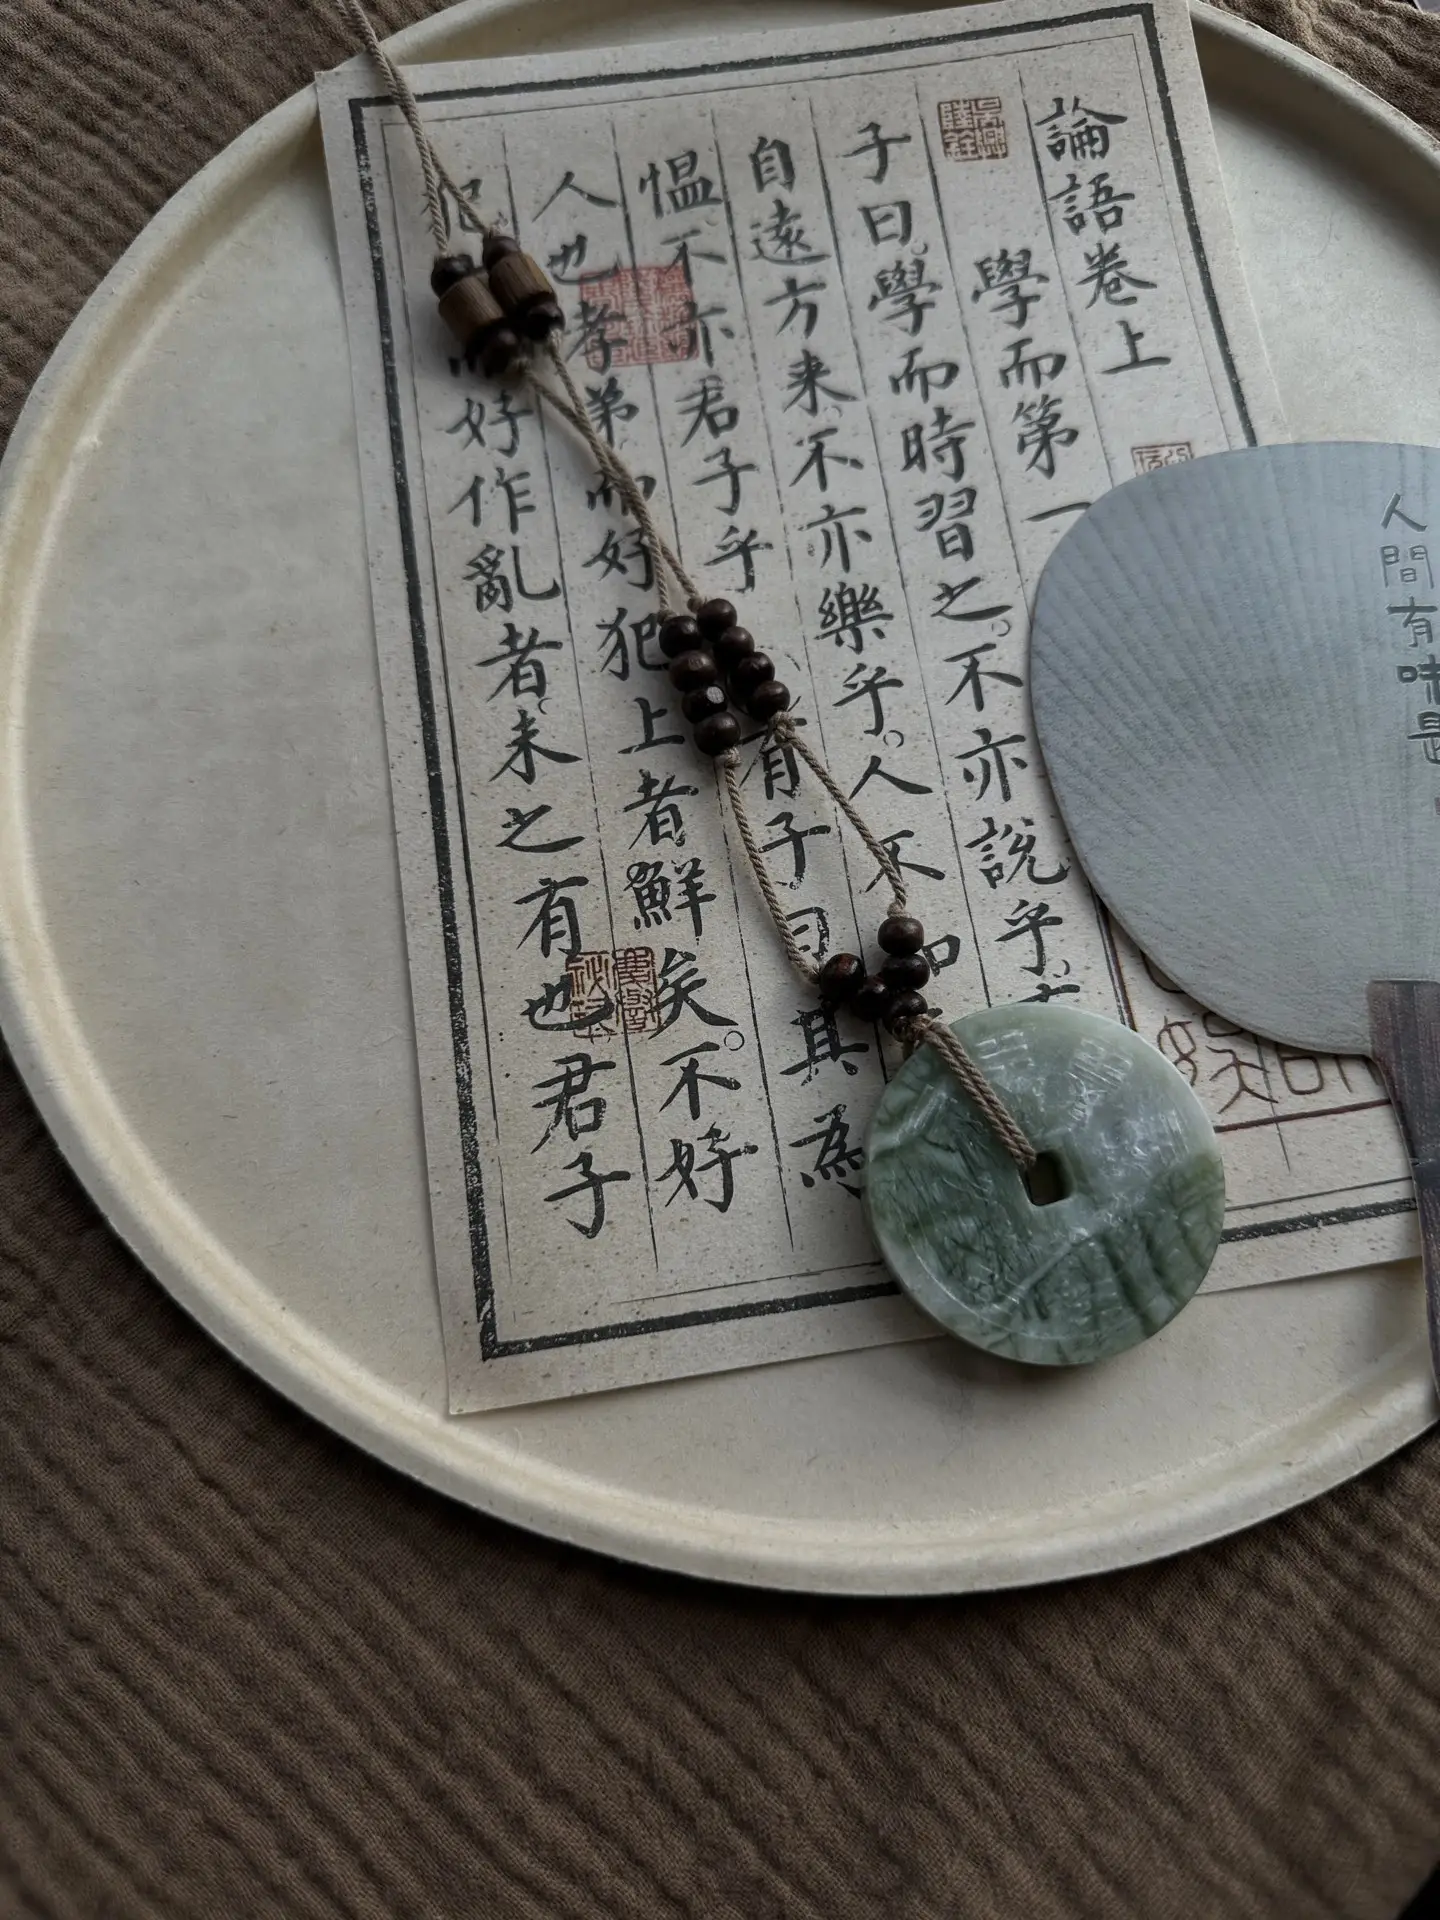 論語卷上
學而第一
子曰。學而時習之。不亦說乎。
自遠方来。不亦樂乎。人不
愠。不亦君子乎 有子曰其為
人也孝弟而好犯上者鮮矣。不好
好作亂者。未之有也君子
人間有味是